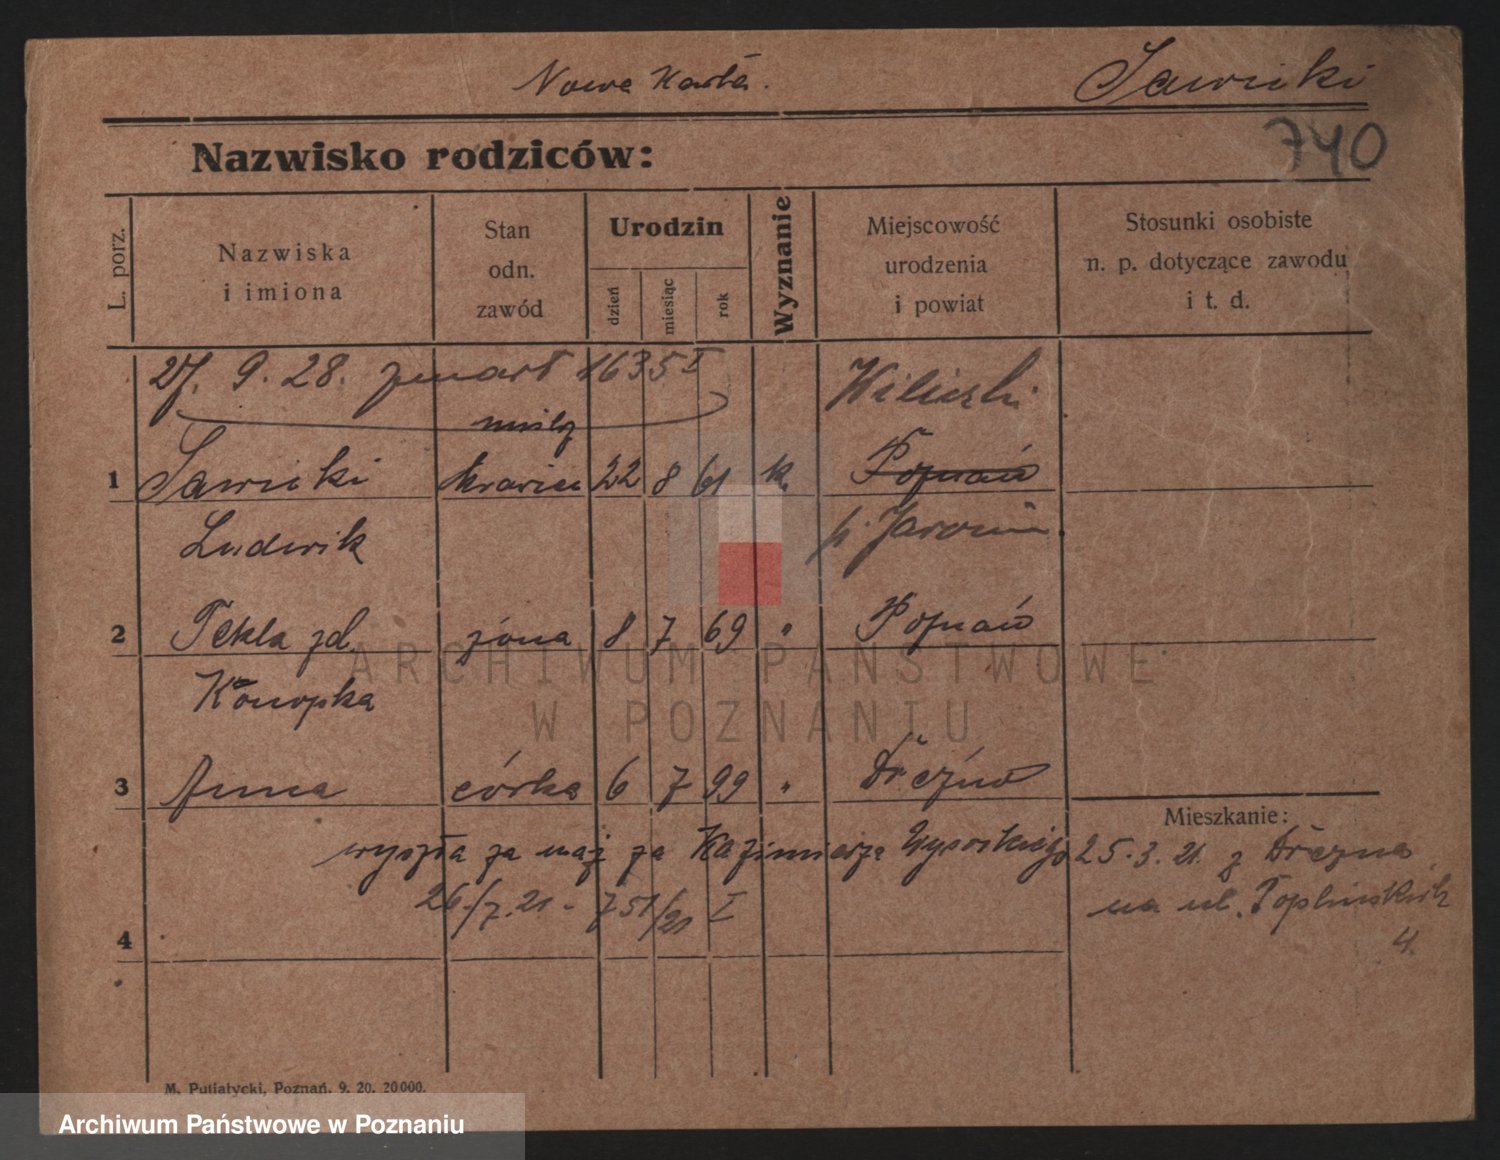 Nowa Karta. Sawicki
740
Nazwisko rodziców:
L. porz.
Nazwiska
i imiona
Stan
odn.
zawód
Urodzin
dzień
miesiąc
rok
Wyznanie
Miejscowość
urodzenia
i powiat
Stosunki osobiste
n. p. dotyczące zawodu
i t. d.
27. 9. 28. zmarł 1635 I
1 Sawicki krawiec 22 8 61 k. Poznań
Ludwik p. Jarocin
2 Tekla zd. żona 8 7 69 " Poznań
Konopka
3 Anna córka 6 7 99 " Drezno
Mieszkanie:
wyszła za mąż za Kazimierza 25. 3. 21. z Drezna
26./7. 21 - 751/21 I na ul.
4.
4
M. Putiatycki, Poznań. 9. 20. 20000.
ARCHIWUM PAŃSTWOWE
W POZNANIU
Archiwum Państwowe w Poznaniu